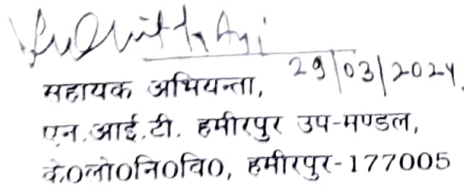 29/03/2024
सहायक अभियन्ता,
एन.आई.टी. हमीरपुर उप-मण्डल,
के०लो०नि०वि०, हमीरपुर-177005